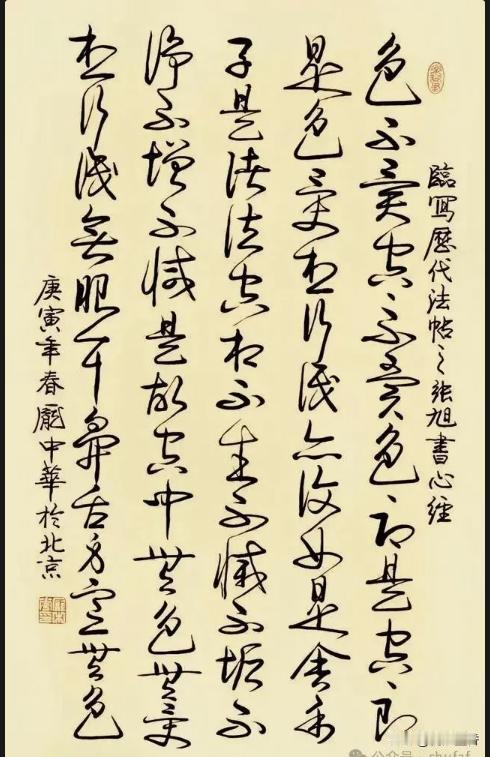 臨寫歷代法帖之張旭書心經
色不異空、不異色、即是空、即
是色受想行識亦復如是舍利
子是諸法空相不生不滅不垢不
淨不增不減是故空中無色無受
想行識無眼耳鼻舌身意無色
庚寅年春龐中華於北京